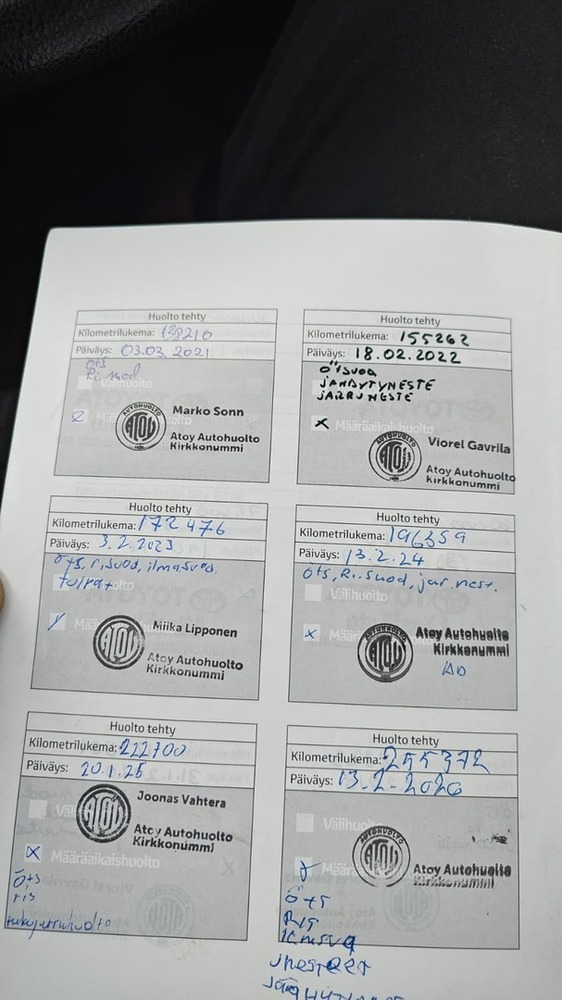 Huolto tehty
Kilometrilukema: 138210
Päiväys: 03.03.2021
öts
Välihuolto
AUTOHUOLTO
ATOY
Marko Sonn
Atoy Autohuolto
Kirkkonummi
Huolto tehty
Kilometrilukema: 155262
Päiväys: 18.02.2022
JÄÄHDYTYNESTE
JARRUNESTE
x Määräaikaishuolto
AUTOHUOLTO
ATOY
Viorel Gavrila
Atoy Autohuolto
Kirkkonummi
Huolto tehty
Kilometrilukema: 172476
Päiväys: 3.2.2023
öts, r.suod, ilmasuod,
ATOY
Miika Lipponen
Atoy Autohuolto
Kirkkonummi
Huolto tehty
Kilometrilukema: 196359
Päiväys: 13.2.24
öts, R.suod, jar.nest.
Välihuolto
x
AUTOHUOLTO
ATOY
Atoy Autohuolto
Kirkkonummi
Huolto tehty
Kilometrilukema: 222700
Päiväys: 20.1.25
ATOY
Joonas Vahtera
Atoy Autohuolto
Kirkkonummi
x Määräaikaishuolto
öts
ris
Huolto tehty
Kilometrilukema: 255372
Päiväys: 13.2.2026
Välihuolto
AUTOHUOLTO
ATOY
Atoy Autohuolto
Kirkkonummi
öts
Ris